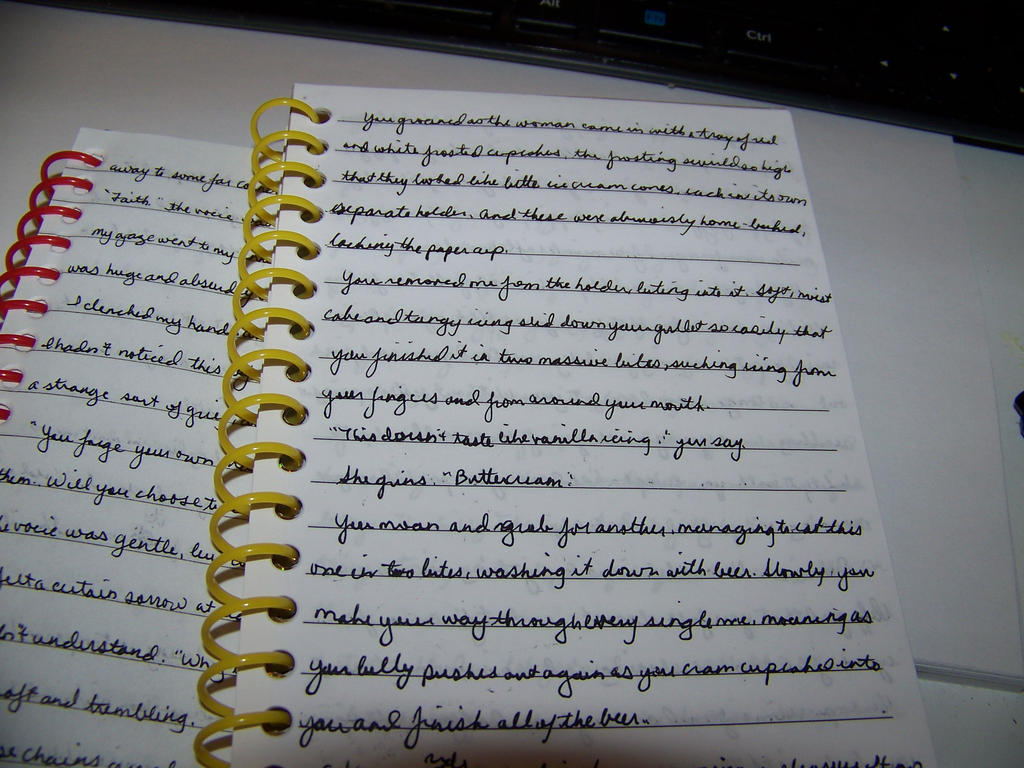 Alt
Fn
Ctrl
You groaned as the woman came in with a tray of red
and white frosted cupcakes, the frosting swirled so high
that they looked like little ice cream cones, each in its own
separate holder. And these were obviously home-baked,
lacking the paper cup.
You removed one from the holder, biting into it. Soft, moist
cake and tangy icing slid down your gullet so easily that
you finished it in two massive bites, sucking icing from
your fingers and from around your mouth.
"This doesn't taste like vanilla icing," you say.
She grins. "Buttercream."
You moan and grab for another, managing to eat this
one in two bites, washing it down with beer. Slowly, you
make your way through every single one, moaning as
your belly pushes out again as you cram cupcakes into
you and finish all of the beer.
away to some far
"Faith" the vocie
my gaze went to my
was huge and absurd
I clenched my hand
I hadn't noticed this
a strange sort of
"You forge your own
them. Will you choose to
vocie was gentle,
felt a certain sorrow at
understand. "Why
soft and trembling.
chains